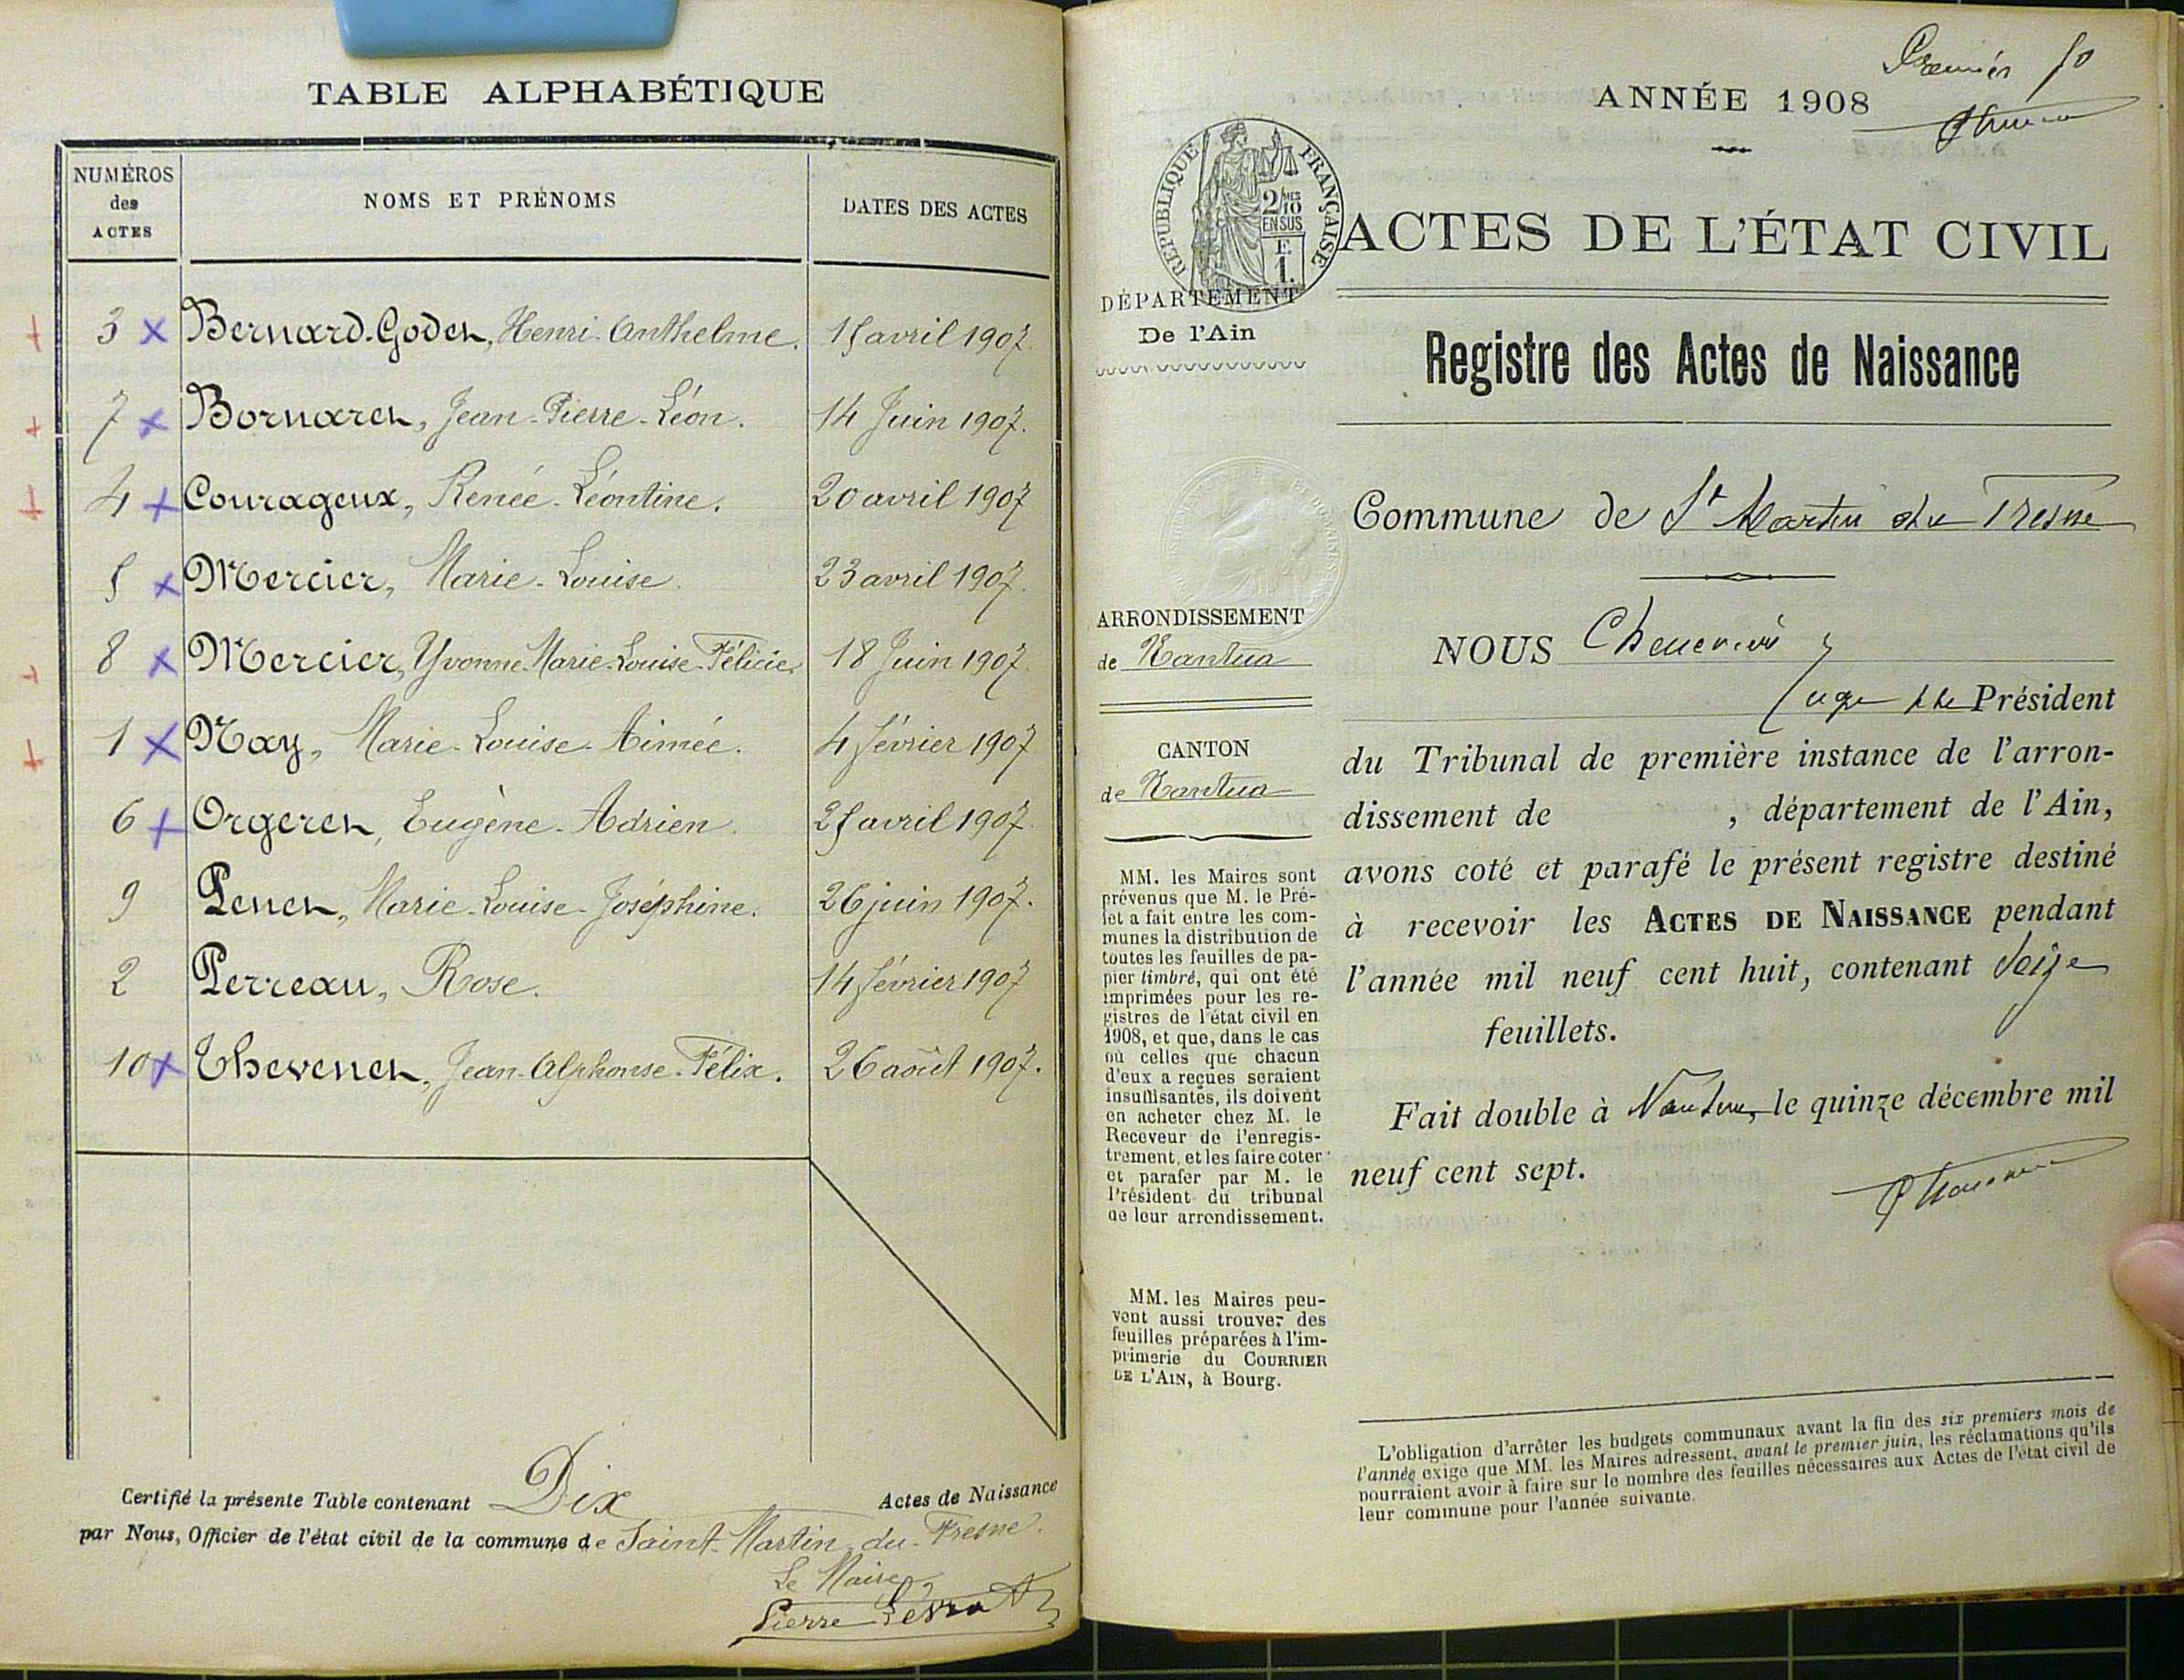 TABLE ALPHABÉTIQUE
NUMÉROS des ACTES
NOMS ET PRÉNOMS
DATES DES ACTES
3 Bernard-Godet, Henri-Anthelme. 15 avril 1907.
7 Bornaret, Jean-Pierre-Léon. 14 Juin 1907.
4 Courageux, Renée-Léontine. 20 avril 1907
5 Mercier, Marie-Louise. 23 avril 1907.
8 Mercier, Yvonne-Marie-Louise-Félicie. 18 Juin 1907.
1 Nay, Marie-Louise-Aimée. 4 février 1907
6 Orgeret, Eugène-Adrien. 25 avril 1907.
9 Penet, Marie-Louise-Joséphine. 26 juin 1907.
2 Perreau, Rose. 14 février 1907
10 Thevenet, Jean-Alphonse-Félix. 26 août 1907.
Certifié la présente Table contenant Dix Actes de Naissance
par Nous, Officier de l'état civil de la commune de Saint-Martin-du-Fresne.
Le Maire,
Pierre
Premier
ANNÉE 1908
RÉPUBLIQUE FRANÇAISE
2/10 MES
EN SUS
F.
1.
ACTES DE L'ÉTAT CIVIL
DÉPARTEMENT
De l'Ain
Registre des Actes de Naissance
Commune de St Martin du Fresne
ARRONDISSEMENT
de Nantua
CANTON
de Nantua
MM. les Maires sont
prévenus que M. le Pré-
fet a fait entre les com-
munes la distribution de
toutes les feuilles de pa-
pier timbré, qui ont été
imprimées pour les re-
gistres de l'état civil en
1908, et que, dans le cas
où celles que chacun
d'eux a reçues seraient
insuffisantes, ils doivent
en acheter chez M. le
Receveur de l'enregis-
trement, et les faire coter
et parafer par M. le
Président du tribunal
de leur arrondissement.
MM. les Maires peu-
vent aussi trouver des
feuilles préparées à l'im-
primerie du COURRIER
DE L'AIN, à Bourg.
NOUS
Juge Président
du Tribunal de première instance de l'arron-
dissement de , département de l'Ain,
avons coté et parafé le présent registre destiné
à recevoir les ACTES DE NAISSANCE pendant
l'année mil neuf cent huit, contenant Seize
feuillets.
Fait double à Nantua, le quinze décembre mil
neuf cent sept.
L'obligation d'arrêter les budgets communaux avant la fin des six premiers mois de
l'année exige que MM. les Maires adressent, avant le premier juin, les réclamations qu'ils
pourraient avoir à faire sur le nombre des feuilles nécessaires aux Actes de l'état civil de
leur commune pour l'année suivante.